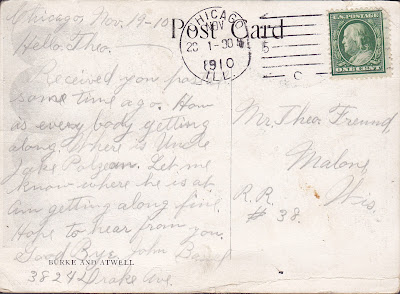 Chicago, Nov. 19-10
Hello, Theo.
Received you postal
some time ago. How
as every body getting
along. Where is Uncle
Jake
Let me
know where he is at
am getting along fine.
Hope to hear from you.
Good Bye John
3824 Drake Ave.
BURKE AND ATWELL
Post Card
CHICAGO
NOV
20 1-30
1910
ILL.
5
C
U.S. POSTAGE
ONE CENT
Mr. Theo. Freund,
Malone,
Wis.
R.R.
# 38.